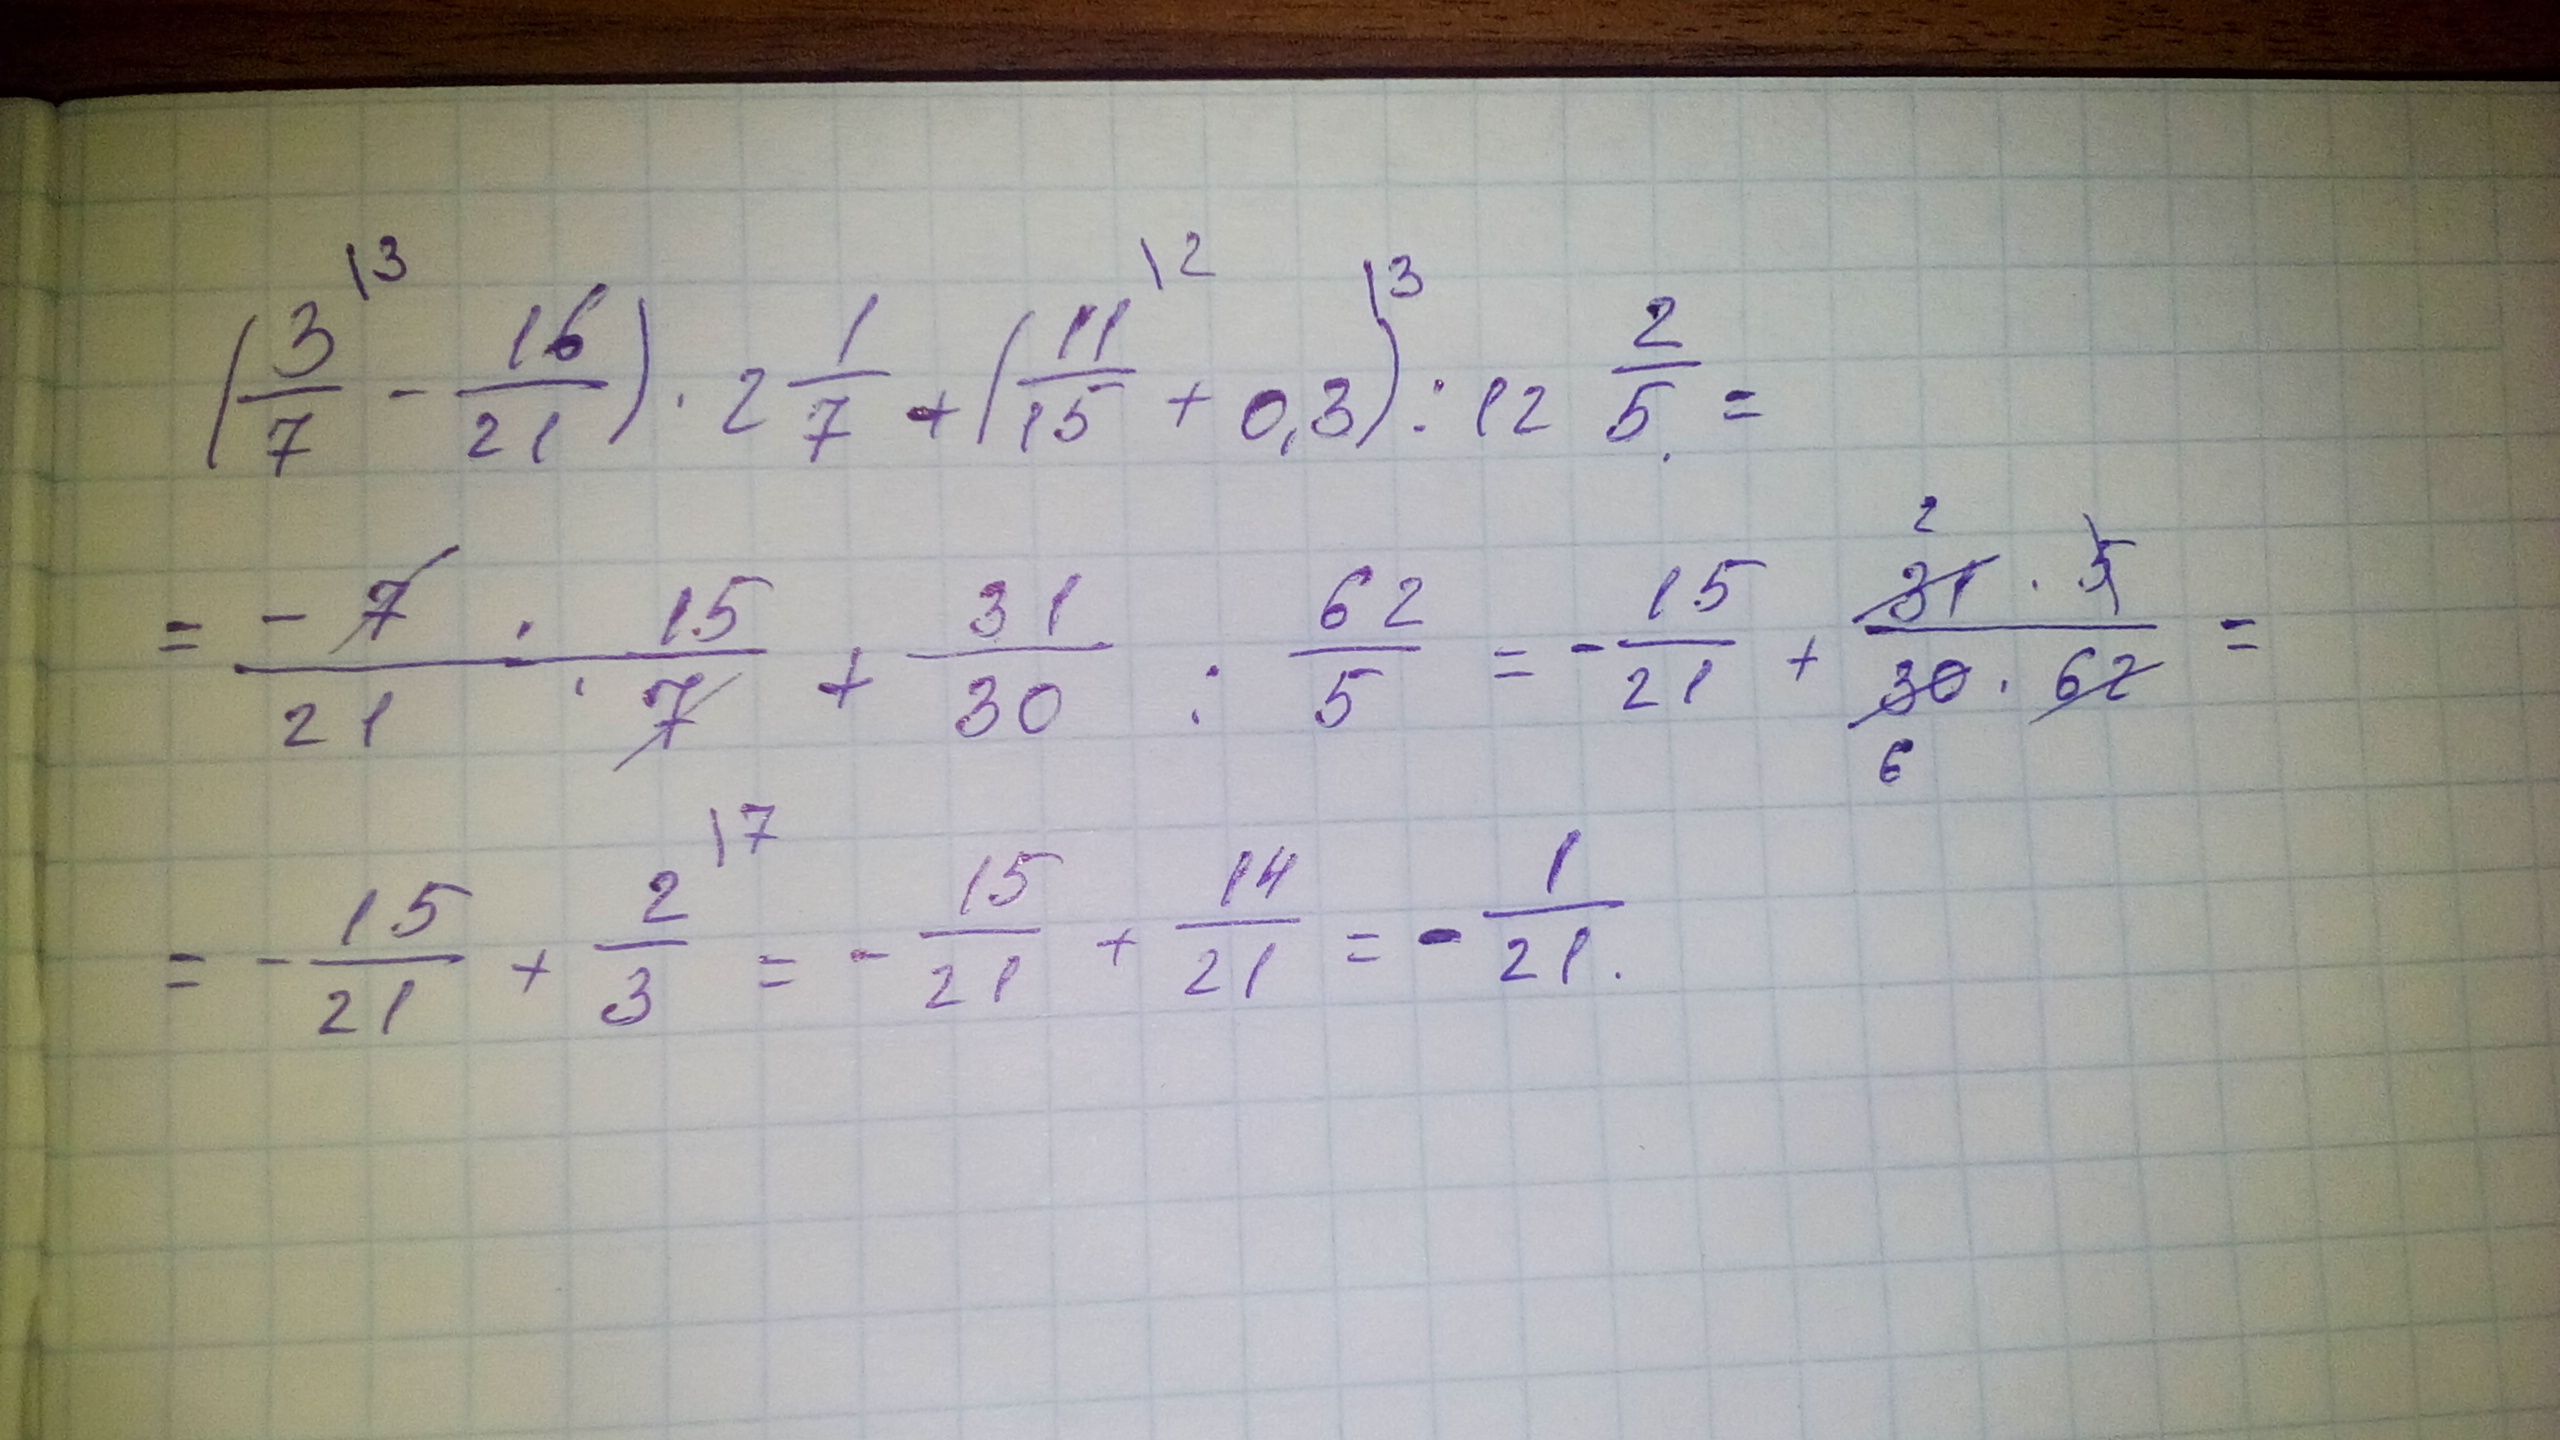 (3/7 \3 - 16/21) · 2 1/7 + (11/15 \2 + 0,3 \3) : 12 2/5 =
= -7/21 · 15/7 + 31/30 : 62/5 = - 15/21 + 2 31 · 5 / 30 · 62 6 =
= - 15/21 + 2/3 \7 = - 15/21 + 14/21 = - 1/21.